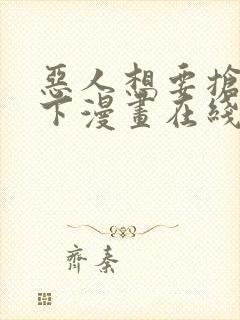 惡人想要搶
下漫畫在綫
齊秦